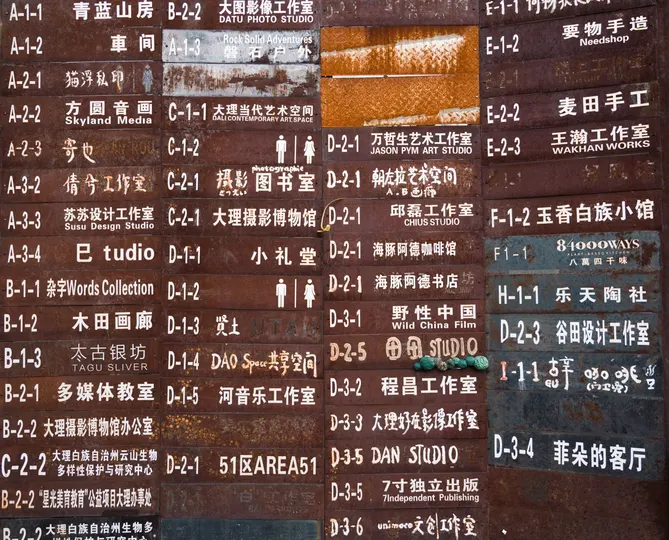 A-1-1 青蓝山房
A-1-2 车间
A-2-1 猫浮私印
A-2-2 方圆音画
Skyland Media
A-2-3 寄也
A-3-2 倩兮工作室
A-3-3 苏苏设计工作室
Susu Design Studio
A-3-4 巳 tudio
B-1-1 杂字Words Collection
B-1-2 木田画廊
B-1-3 太古银坊
TAGU SLIVER
B-2-1 多媒体教室
B-2-2 大理摄影博物馆办公室
C-2-2 大理白族自治州云山生物
多样性保护与研究中心
B-2-2 “星光美育教育”公益项目大理办事处
B-2-2 大理白族自治州生物多
样性保护与研究中心
B-2-2 大图影像工作室
DATU PHOTO STUDIO
A-1-3 Rock Solid Adventures
磐石户外
C-1-1 大理当代艺术空间
DALI CONTEMPORARY ART SPACE
C-1-2
photographic
C-2-1 摄影图书室
C-2-1 大理摄影博物馆
D-1-1 小礼堂
D-1-2
D-1-3 贤土
D-1-4 DAO Space共享空间
D-1-5 河音乐工作室
D-2-1 51区AREA51
D-2-1 万哲生艺术工作室
JASON PYM ART STUDIO
D-2-1 艺术空间
D-2-1 邱磊工作室
CHIUS STUDIO
D-2-1 海豚阿德咖啡馆
D-2-1 海豚阿德书店
D-3-1 野性中国
Wild China Film
D-2-5 STUDIO
D-3-2 程昌工作室
D-3-3 大理好在影像工作室
D-3-5 DAN STUDIO
D-3-5 7寸独立出版
7independent Publishing
D-3-6 unimore文创工作室
E-1-1
E-1-2 要物手造
Needshop
E-2-2 麦田手工
E-2-3 王瀚工作室
WAKHAN WORKS
F-1-2 玉香白族小馆
F1-1 84000WAYS
八萬四千味
H-1-1 乐天陶社
D-2-3 谷田设计工作室
I-1-1
D-3-4 菲朵的客厅